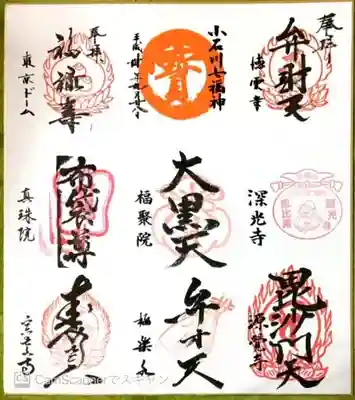 奉拝
弁財天
徳雲寺
小石川七福神
寿
奉拝
福禄寿
東京ドーム
毘沙門天
源覚寺
深光寺
大黒天
福聚院
弁才天
極楽水
布袋尊
真珠院
CamScannerでスキャン